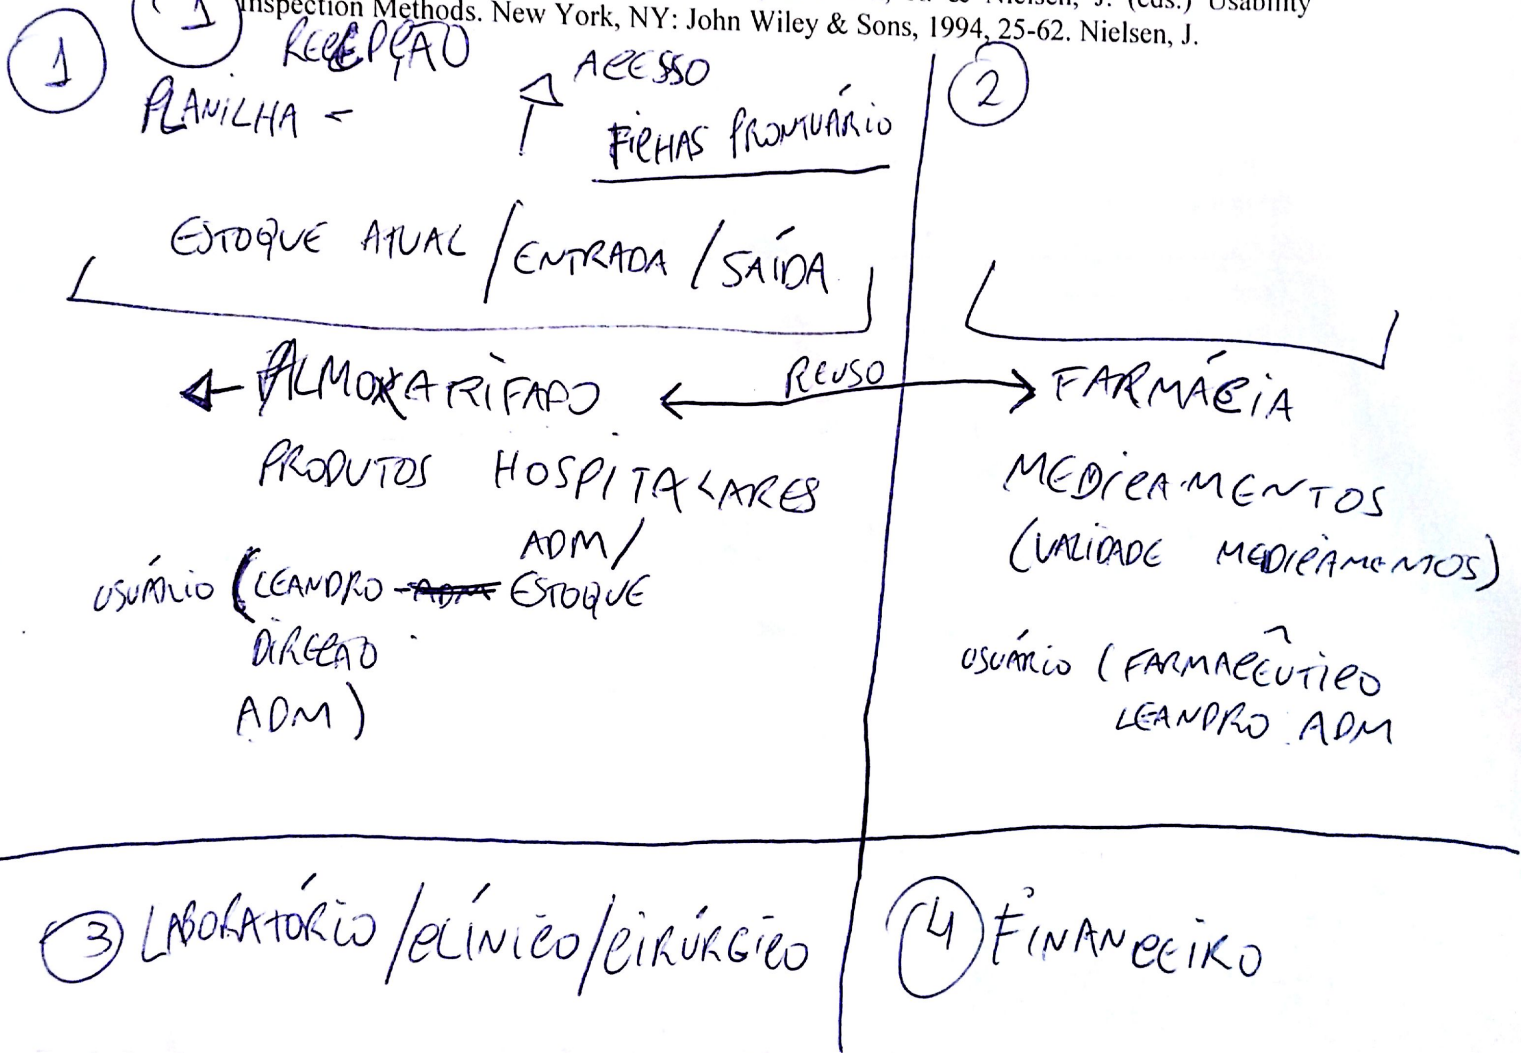 Inspection Methods. New York, NY: John Wiley & Sons, 1994, 25-62. Nielsen, J.
1
1
RECEPÇÃO
PLANILHA -
ACESSO
FICHAS PRONTUÁRIO
ESTOQUE ATUAL / ENTRADA / SAÍDA
ALMOXARIFADO
REUSO
PRODUTOS HOSPITALARES
USUÁRIO (LEANDRO - ADM ADM/
ESTOQUE
DIREÇÃO
ADM)
2
FARMÁCIA
MEDICAMENTOS
(VALIDADE MEDICAMENTOS)
USUÁRIO (FARMACÊUTICO
LEANDRO ADM
3 LABORATÓRIO/CLÍNICO/CIRÚRGICO
4 FINANCEIRO